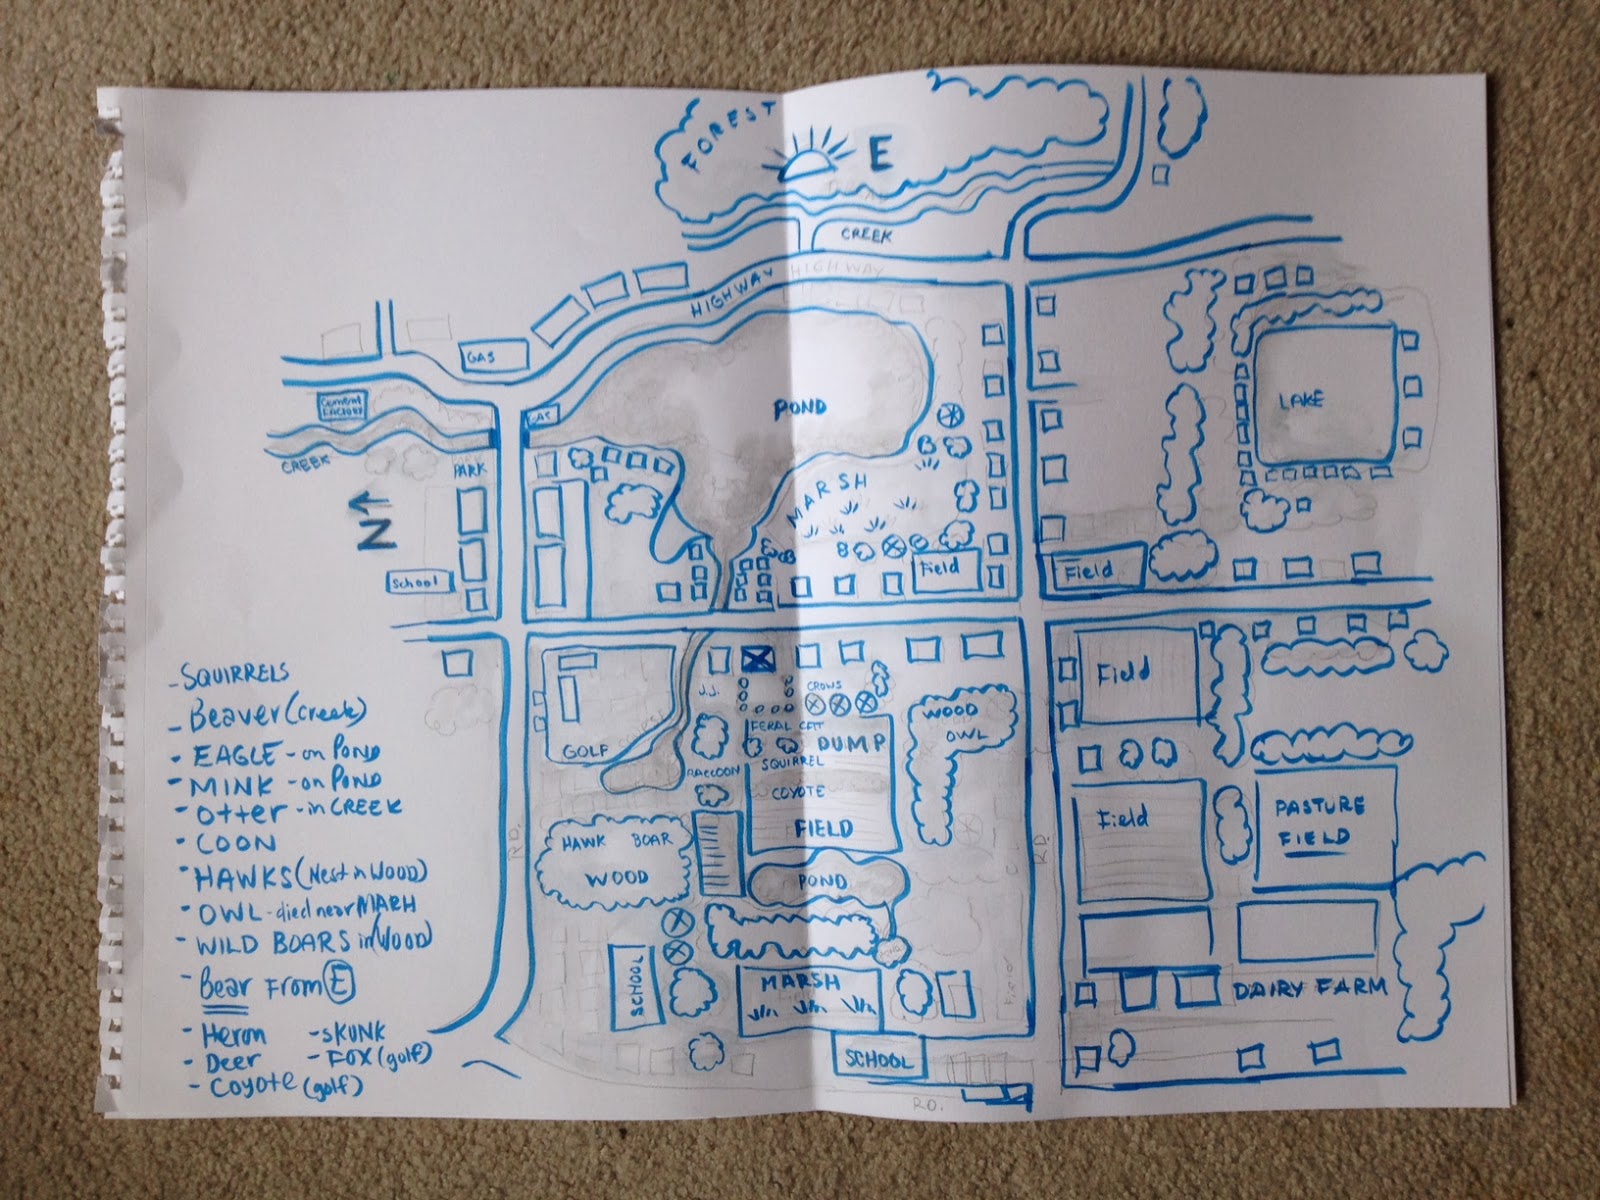 FOREST
E
CREEK
HIGHWAY
HIGHWAY
GAS
Cement
FACTORY
GAS
POND
LAKE
CREEK
PARK
MARSH
N
School
Field
Field
SQUIRRELS
Beaver (Creek)
EAGLE - on POND
MINK - on POND
Otter - in CREEK
COON
HAWKS (Nest in WOOD)
OWL - died near MARH
WILD BOARS in (WOOD)
Bear From E
Heron - SKUNK
Deer - FOX (golf)
Coyote (golf)
GOLF
J.J.
CROWS
FERAL CAT
DUMP
SQUIRREL
RACCOON
COYOTE
FIELD
WOOD
OWL
Field
Field
PASTURE
FIELD
HAWK BOAR
WOOD
POND
RD.
RD.
SCHOOL
MARSH
DAIRY FARM
SCHOOL
RD.